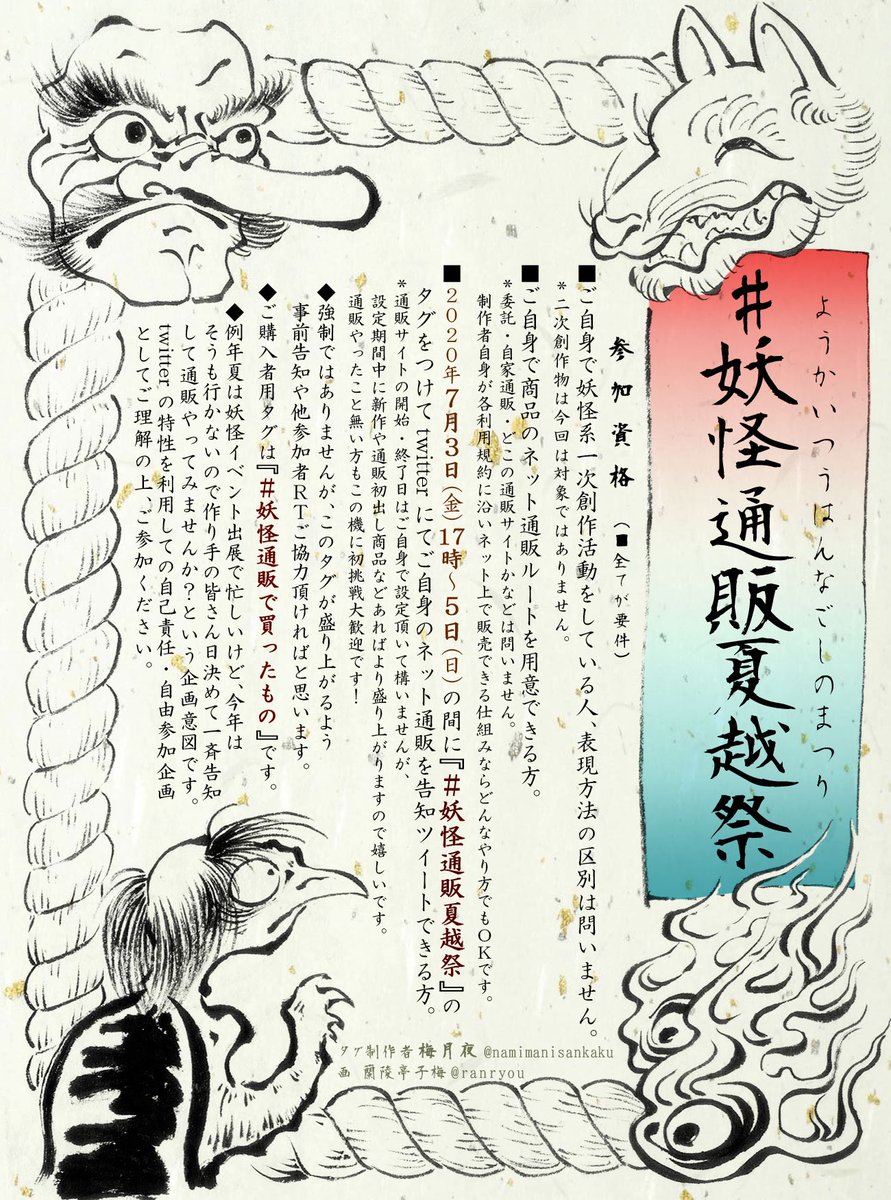 ようかいつうはんなごしのまつり
#妖怪通販夏越祭
参加資格（■全てが要件）
■ご自身で妖怪系一次創作活動をしている人、表現方法の区別は問いません。
＊二次創作物は今回は対象ではありません。
■ご自身で商品のネット通販ルートを用意できる方。
＊委託・自家通販・どこの通販サイトかなどは問いません。
制作者自身が各利用規約に沿いネット上で販売できる仕組みならどんなやり方でもOKです。
■2020年7月3日（金）17時～5日（日）の間に『#妖怪通販夏越祭』の
タグをつけてtwitterにてご自身のネット通販を告知ツイートできる方。
＊通販サイトの開始・終了日はご自身で設定頂いて構いませんが、
設定期間中に新作や通販初出し商品などあればより盛り上がりますので嬉しいです。
通販やったこと無い方もこの機に初挑戦大歓迎です！
◆強制ではありませんが、このタグが盛り上がるよう
事前告知や他参加者RTご協力頂ければと思います。
◆ご購入者用タグは『#妖怪通販で買ったもの』です。
◆例年夏は妖怪イベント出展で忙しいけど、今年は
そうも行かないので作り手の皆さん日決めて一斉告知
して通販やってみませんか？という企画意図です。
twitterの特性を利用しての自己責任・自由参加企画
としてご理解の上、ご参加ください。
タグ制作者 梅月夜 @namimanisankaku
画 蘭陵亭子梅 @ranryou